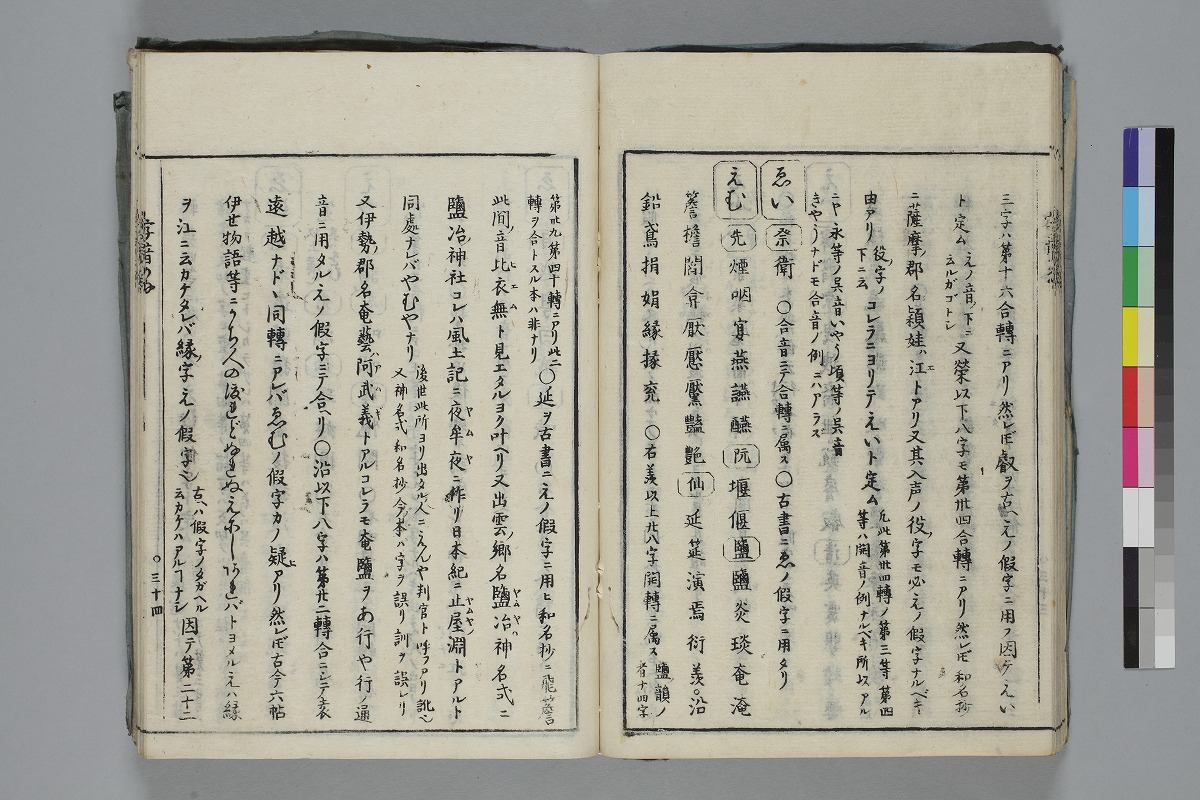 三字ハ第十六合轉ニアリ然レ𪜈叡ヲ古ヘえノ假字ニ用フ因テえい
ト定ム えノ音ノ下ニ云ルガゴトシ 又榮以下八字モ第卅四合轉ニアリ然レ𪜈和名抄
ニ薩摩ノ郡名穎娃ハ江トアリ又其入声ノ役字モ必えノ假字ナルベキ
由アリ 役字ノ下ニ云 コレラニヨリテえいト定ム 凡此第卅四轉ノ第三等第四等ハ開音ノ例ナルベキ所以アル
ニヤ永等ノ呉音いやう頃等ノ呉音きやうナドモ合音ノ例ニハアラス
ゑい 祭 衛 〇合音ニテ合轉ニ属ス〇古書ニゑノ假字ニ用タリ
えむ 先 煙咽宴燕讌醼 阮 堰偃 鹽 鹽炎琰奄淹
簷檐閻弇厭懕魘豔艶 仙 延筵演焉衍羨。沿
鉛鳶捐娟縁掾兖 〇右羨以上廿八字開轉ニ属ス 鹽韻ノ者十四字
第卅九第四十轉ニアリ此ニ轉ヲ合トスル本ハ非ナリ 〇延ヲ古書ニえノ假字ニ用ヒ和名抄ニ飛簷
此間音比衣無ト見エタルヨク叶ヘリ又出雲ノ郷名鹽冶神名式ニ
鹽冶神社コレハ風土記ニ夜牟夜ニ作リ日本紀ニ止屋淵トアルト
同處ナレバやむやナリ 後世此所ヨリ出タル人ニえんや判官ト呼フアリ訛也又神名式和名抄今本ハ字ヲ誤リ訓ヲ誤レリ
又伊勢ノ郡名奄藝阿武義トアルコレラモ奄鹽ヲあ行や行ノ通
音ニ用タルえノ假字ニテ合ヘリ〇沿以下八字ハ第廿二轉合ニシテ袁
遠越ナドヽ同轉ニアレバゑむノ假字カノ疑アリ然レ𪜈古今六帖
伊世物語等ニ
ヲ江ニ云カケタレバ縁字えノ假字也 古ハ假字ノタガヘル云カケハアルヿナシ 因テ第二十二
〇三十四